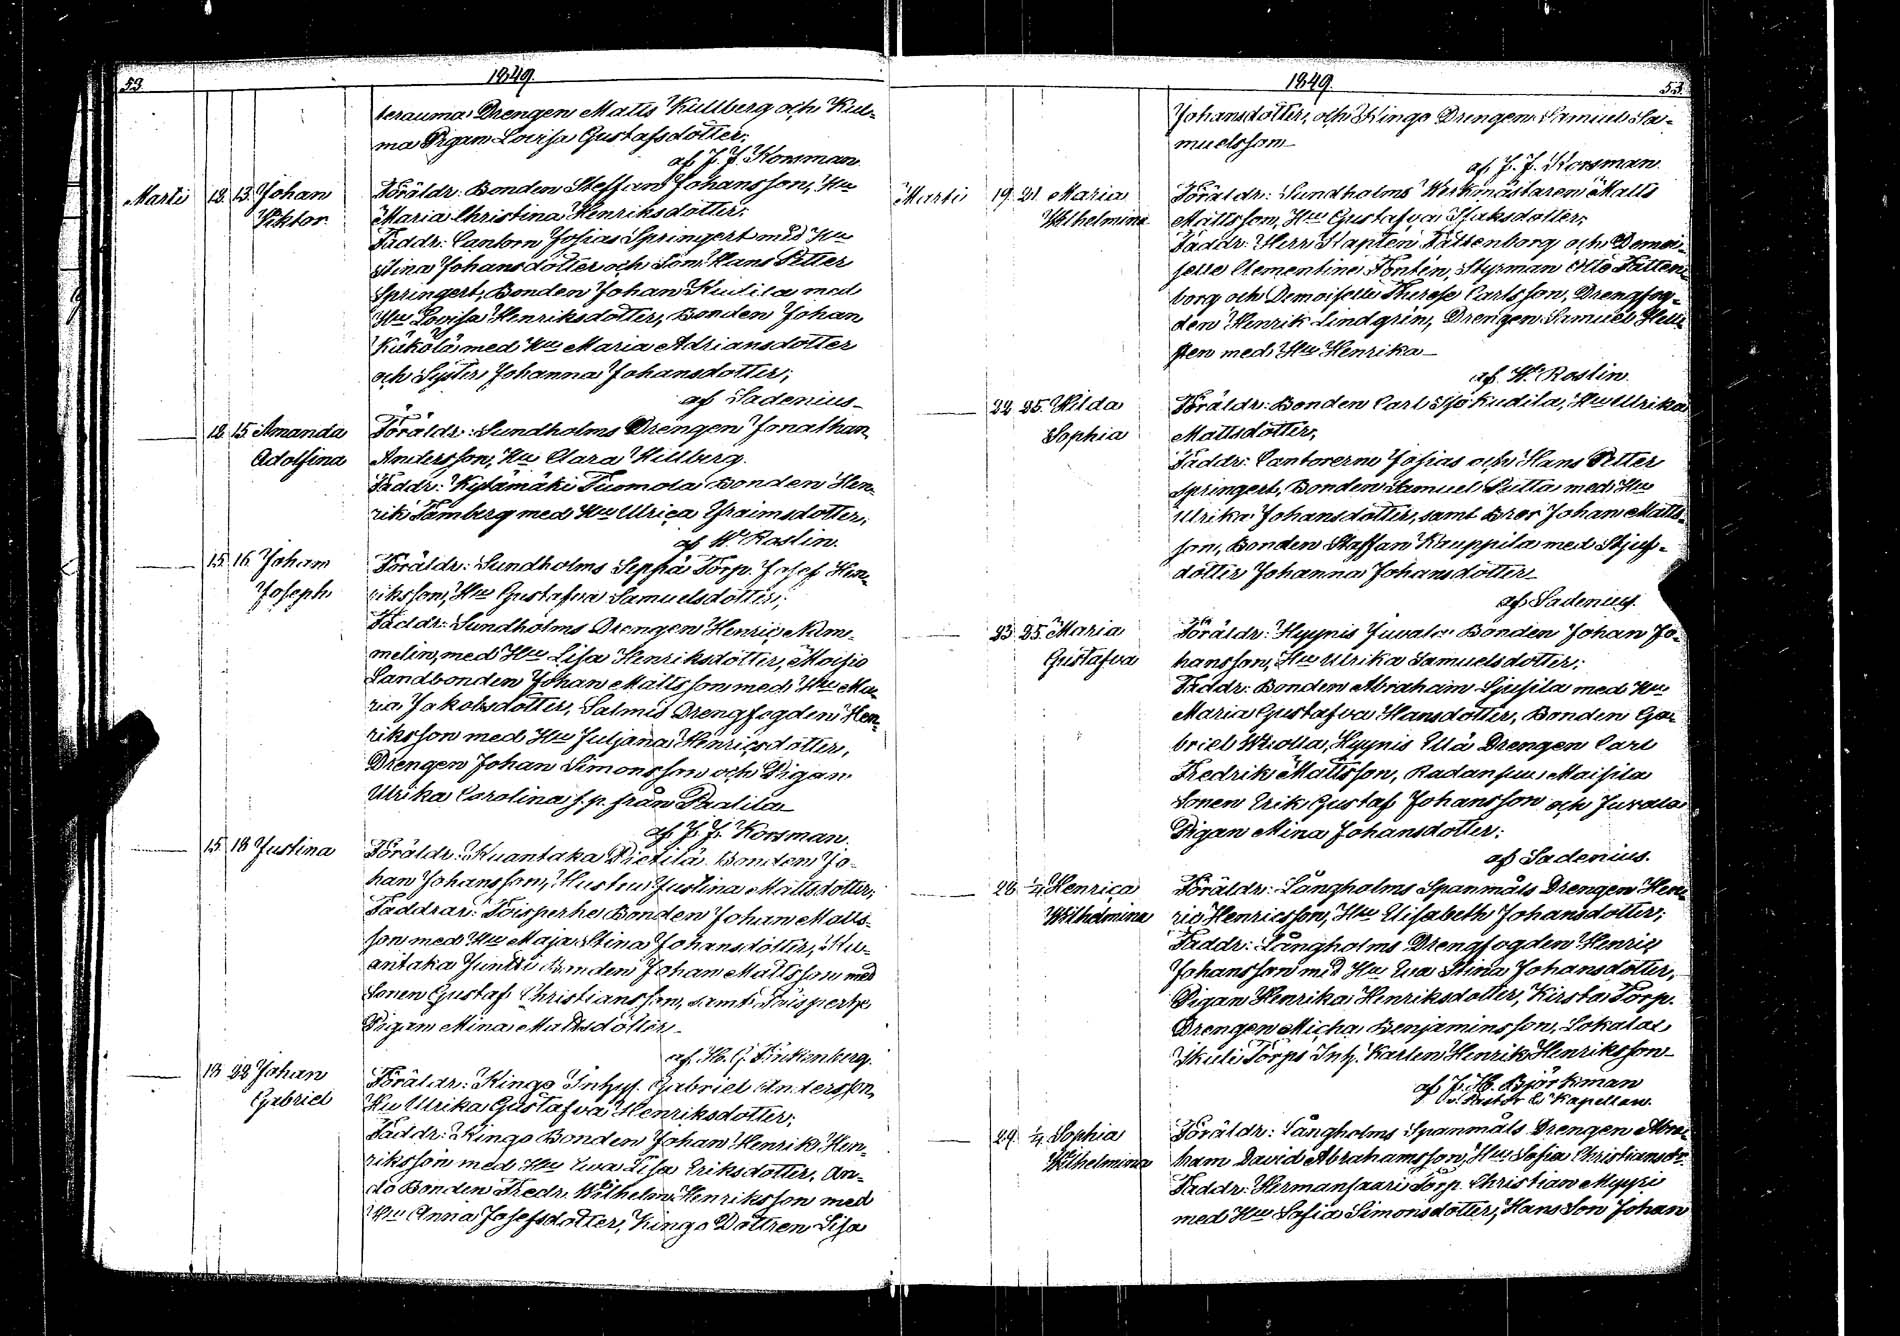 53.
1849.
berauma Drengen Matts Kullberg och Kul-
ma Pigan Lovisa Gustafsdotter;
af J. J. Korsman.
Martii 12. 13. Johan Föräldr: Bonden Steffan Johansson, Hu
Viktor. Maria Christina Henriksdotter;
Faddr: Cantorn Josias Springert med Hu
Stina Johansdotter och Son Hans Petter
Springert, Bonden Johan Kudila med
Hu Lovisa Henriksdotter, Bonden Johan
Kukola med Hu Maria Adriansdotter
och Syster Johanna Johansdotter;
af Sadenius
12. 15. Amanda Föräldr: Sundholms Drengen Jonathan
Adolfina Andersson, Hu Clara Hillberg.
Faddr: Kytämäki Tuomola Bonden Hen-
rik Tamberg med Hu Ulrica Efraimsdotter;
af W. Roslin.
15. 16. Johan Föräldr: Sundholms Seppä Torp. Josef Hen-
Joseph riksson, Hu Gustafva Samuelsdotter;
Faddr: Sundholms Drengen Henric Num-
melin, med Hu Lisa Henriksdotter, Moisio
Landbonden Johan Mattsson med Hu Ma-
ria Jakobsdotter, Salmis Drengfogden Hen-
riksson med Hu Juljana Henricsdotter,
Drengen Johan Simonsson och Pigan
Ulrika Carolina f.p. från Padila
af J. J. Korsman.
15. 18. Justina Föräldr: Kuantaka Pietilä Bonden Jo-
han Johansson, Hustru Justina Mattsdotter;
Faddrar: Toisperhe Bonden Johan Matts-
son med Hu Maja Stina Johansdotter, Ku-
antaka Juntti Bonden Johan Mattsson med
Sonen Gustaf Christiansson, samt Toisperhe
Pigan Mina Mattsdotter
af H. G.
18. 22. Johan Föräldr: Kingo Inhys. Gabriel Andersson,
Gabriel Hu Ulrika Gustafva Henriksdotter;
Faddr: Kingo Bonden Johan Henrik Hen-
riksson med Hu Ewa Lisa Eriksdotter, An-
do Bonden Fredr. Wilhelm Henriksson med
Hu Anna Josefsdotter, Kingo Dottren Lisa
1849.
53.
Johansdotter, och Kingo Drengen Samuel Sa-
muelsson
af J. J. Korsman.
Martii 19. 21. Maria Föräldr: Sundholms Werkmästaren Matts
Wilhelmina Mattsson, Hu Gustafva Isaksdotter;
Faddr: Herr Kapten Fattenborg och Demoi-
selle Clementine Fontén, Styrman Otto Fatten-
borg och Demoiselle Therese Carlsson, Drengfog-
den Henrik Lindgrén, Drengen Samuel Hell-
sten med Hu Henrika
af W. Roslin.
22. 25. Hilda Föräldr: Bonden Carl Iso Kudila, Hu Ulrika
Sophia Mattsdotter;
Faddr: Cantorerne Josias och Hans Petter
Springert, Bonden Samuel Sutta med Hu
Ulrika Johansdotter, samt Bror Johan Matts-
son, Bonden Staffan Kauppila med Stjuf-
dotter Johanna Johansdotter
af Sadenius.
23. 25. Maria Föräldr: Hyynis Juvala Bonden Johan Jo-
Gustafva hansson, Hu Ulrika Samuelsdotter;
Faddr: Bonden Abraham Sjusila med Hu
Maria Gustafva Hansdotter, Bonden Ga-
briel Wiolla, Hyynis Ellä Drengen Carl
Fredrik Mattsson, Radansuu Maisila
Sonen Erik Gustaf Johansson och Juvala
Pigan Mina Johansdotter;
af Sadenius.
28. 1/4 Henrica Föräldr: Långholms Spanmåls Drengen Hen-
Wilhelmina ric Henricsson, Hu Elisabeth Johansdotter;
Faddr: Långholms Drengfogden Henric
Johansson med Hu Eva Stina Johansdotter,
Pigan Henrika Henriksdotter, Kirsta Torp.
Drengen Micha Benjaminsson, Lokalax
Skuli Torps Inh. Karlen Henrik Henriksson
af J. H. Björkman
v. Pastor & Kapellan.
29. 1/4 Sophia Föräldr: Långholms Spanmåls Drengen Abra-
Wilhelmina ham David Abrahamsson, Hu Sofia Christiansdr.
Faddr: Hermansaari Torp. Christian Myyri
med Hu Sofia Simonsdotter, Hans Son Johan